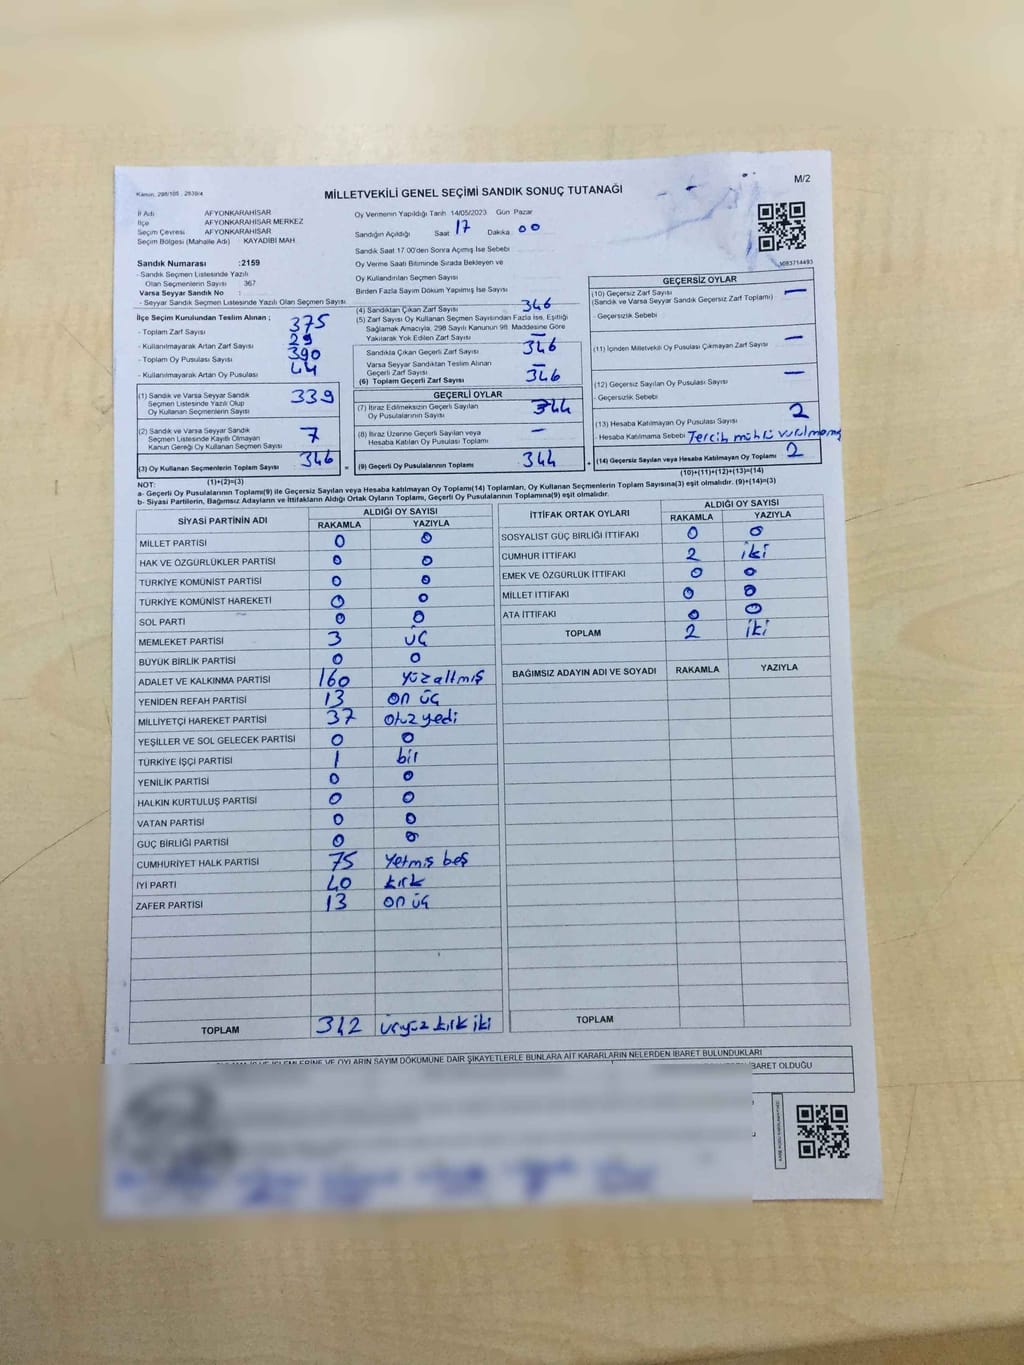 Kanun, 298/105 2839/4
MİLLETVEKİLİ GENEL SEÇİMİ SANDIK SONUÇ TUTANAĞI
M/2
İl Adı AFYONKARAHİSAR
İlçe AFYONKARAHİSAR MERKEZ
Seçim Çevresi AFYONKARAHİSAR
Seçim Bölgesi (Mahalle Adı) KAYADİBİ MAH.
Oy Vermenin Yapıldığı Tarih 14/05/2023 Gün Pazar
Sandığın Açıldığı Saat 17 Dakika 00
Sandık Saat 17:00'den Sonra Açımış İse Sebebi
Oy Verme Saati Bitiminde Sırada Bekleyen ve
Oy Kullandırılan Seçmen Sayısı
Birden Fazla Sayım Döküm Yapılmış İse Sayısı
Sandık Numarası :2159
- Sandık Seçmen Listesinde Yazılı
Olan Seçmenlerin Sayısı : 367
Varsa Seyyar Sandık No :
- Seyyar Sandık Seçmen Listesinde Yazılı Olan Seçmen Sayısı
İlçe Seçim Kurulundan Teslim Alınan ;
- Toplam Zarf Sayısı 375
- Kullanılmayarak Artan Zarf Sayısı 29
- Toplam Oy Pusulası Sayısı 390
- Kullanılmayarak Artan Oy Pusulası 44
(1) Sandık ve Varsa Seyyar Sandık
Seçmen Listesinde Yazılı Olup
Oy Kullanan Seçmenlerin Sayısı 339
(2) Sandık ve Varsa Seyyar Sandık
Seçmen Listesinde Kayıtlı Olmayan
Kanun Gereği Oy Kullanan Seçmen Sayısı 7
(3) Oy Kullanan Seçmenlerin Toplam Sayısı 346
(1)+(2)=(3)
(4) Sandıktan Çıkan Zarf Sayısı 346
(5) Zarf Sayısı Oy Kullanan Seçmen Sayısından Fazla İse, Eşitliği
Sağlamak Amacıyla, 298 Sayılı Kanunun 98. Maddesine Göre
Yakılarak Yok Edilen Zarf Sayısı —
Sandıkta Çıkan Geçerli Zarf Sayısı 346
Varsa Seyyar Sandıktan Teslim Alınan
Geçerli Zarf Sayısı —
(6) Toplam Geçerli Zarf Sayısı 346
GEÇERLİ OYLAR
(7) İtiraz Edilmeksizin Geçerli Sayılan
Oy Pusulalarının Sayısı 344
(8) İtiraz Üzerine Geçerli Sayılan veya
Hesaba Katılan Oy Pusulası Toplamı —
= (9) Geçerli Oy Pusulalarının Toplamı 344
GEÇERSİZ OYLAR
(10) Geçersiz Zarf Sayısı —
(Sandık ve Varsa Seyyar Sandık Geçersiz Zarf Toplamı)
- Geçersizlik Sebebi
(11) İçinden Milletvekili Oy Pusulası Çıkmayan Zarf Sayısı —
(12) Geçersiz Sayılan Oy Pusulası Sayısı —
- Geçersizlik Sebebi
(13) Hesaba Katılmayan Oy Pusulası Sayısı 2
- Hesaba Katılmama Sebebi Tercih mührü vurulmamış
+ (14) Geçersiz Sayılan veya Hesaba Katılmayan Oy Toplamı 2
(10)+(11)+(12)+(13)=(14)
NOT:
a- Geçerli Oy Pusulalarının Toplamı(9) ile Geçersiz Sayılan veya Hesaba katılmayan Oy Toplamı(14) Toplamları, Oy Kullanan Seçmenlerin Toplam Sayısına(3) eşit olmalıdır. (9)+(14)=(3)
b- Siyasi Partilerin, Bağımsız Adayların ve İttifakların Aldığı Ortak Oyların Toplamı, Geçerli Oy Pusulalarının Toplamına(9) eşit olmalıdır.
SİYASİ PARTİNİN ADI ALDIĞI OY SAYISI
RAKAMLA YAZIYLA
MİLLET PARTİSİ 0 0
HAK VE ÖZGÜRLÜKLER PARTİSİ 0 0
TÜRKİYE KOMÜNİST PARTİSİ 0 0
TÜRKİYE KOMÜNİST HAREKETİ 0 0
SOL PARTİ 0 0
MEMLEKET PARTİSİ 3 üç
BÜYÜK BİRLİK PARTİSİ 0 0
ADALET VE KALKINMA PARTİSİ 160 yüzaltmış
YENİDEN REFAH PARTİSİ 13 on üç
MİLLİYETÇİ HAREKET PARTİSİ 37 otuz yedi
YEŞİLLER VE SOL GELECEK PARTİSİ 0 0
TÜRKİYE İŞÇİ PARTİSİ 1 bir
YENİLİK PARTİSİ 0 0
HALKIN KURTULUŞ PARTİSİ 0 0
VATAN PARTİSİ 0 0
GÜÇ BİRLİĞİ PARTİSİ 0 0
CUMHURİYET HALK PARTİSİ 75 Yetmiş beş
İYİ PARTİ 40 kırk
ZAFER PARTİSİ 13 on üç
TOPLAM 342 üçyüz kırk iki
İTTİFAK ORTAK OYLARI ALDIĞI OY SAYISI
RAKAMLA YAZIYLA
SOSYALİST GÜÇ BİRLİĞİ İTTİFAKI 0 0
CUMHUR İTTİFAKI 2 iki
EMEK VE ÖZGÜRLÜK İTTİFAKI 0 0
MİLLET İTTİFAKI 0 0
ATA İTTİFAKI 0 0
TOPLAM 2 iki
BAĞIMSIZ ADAYIN ADI VE SOYADI RAKAMLA YAZIYLA
TOPLAM
OYLARIN SAYIM DÖKÜMÜNE DAİR ŞİKAYETLERLE BUNLARA AİT KARARLARIN NELERDEN İBARET BULUNDUKLARI
İBARET OLDUĞU